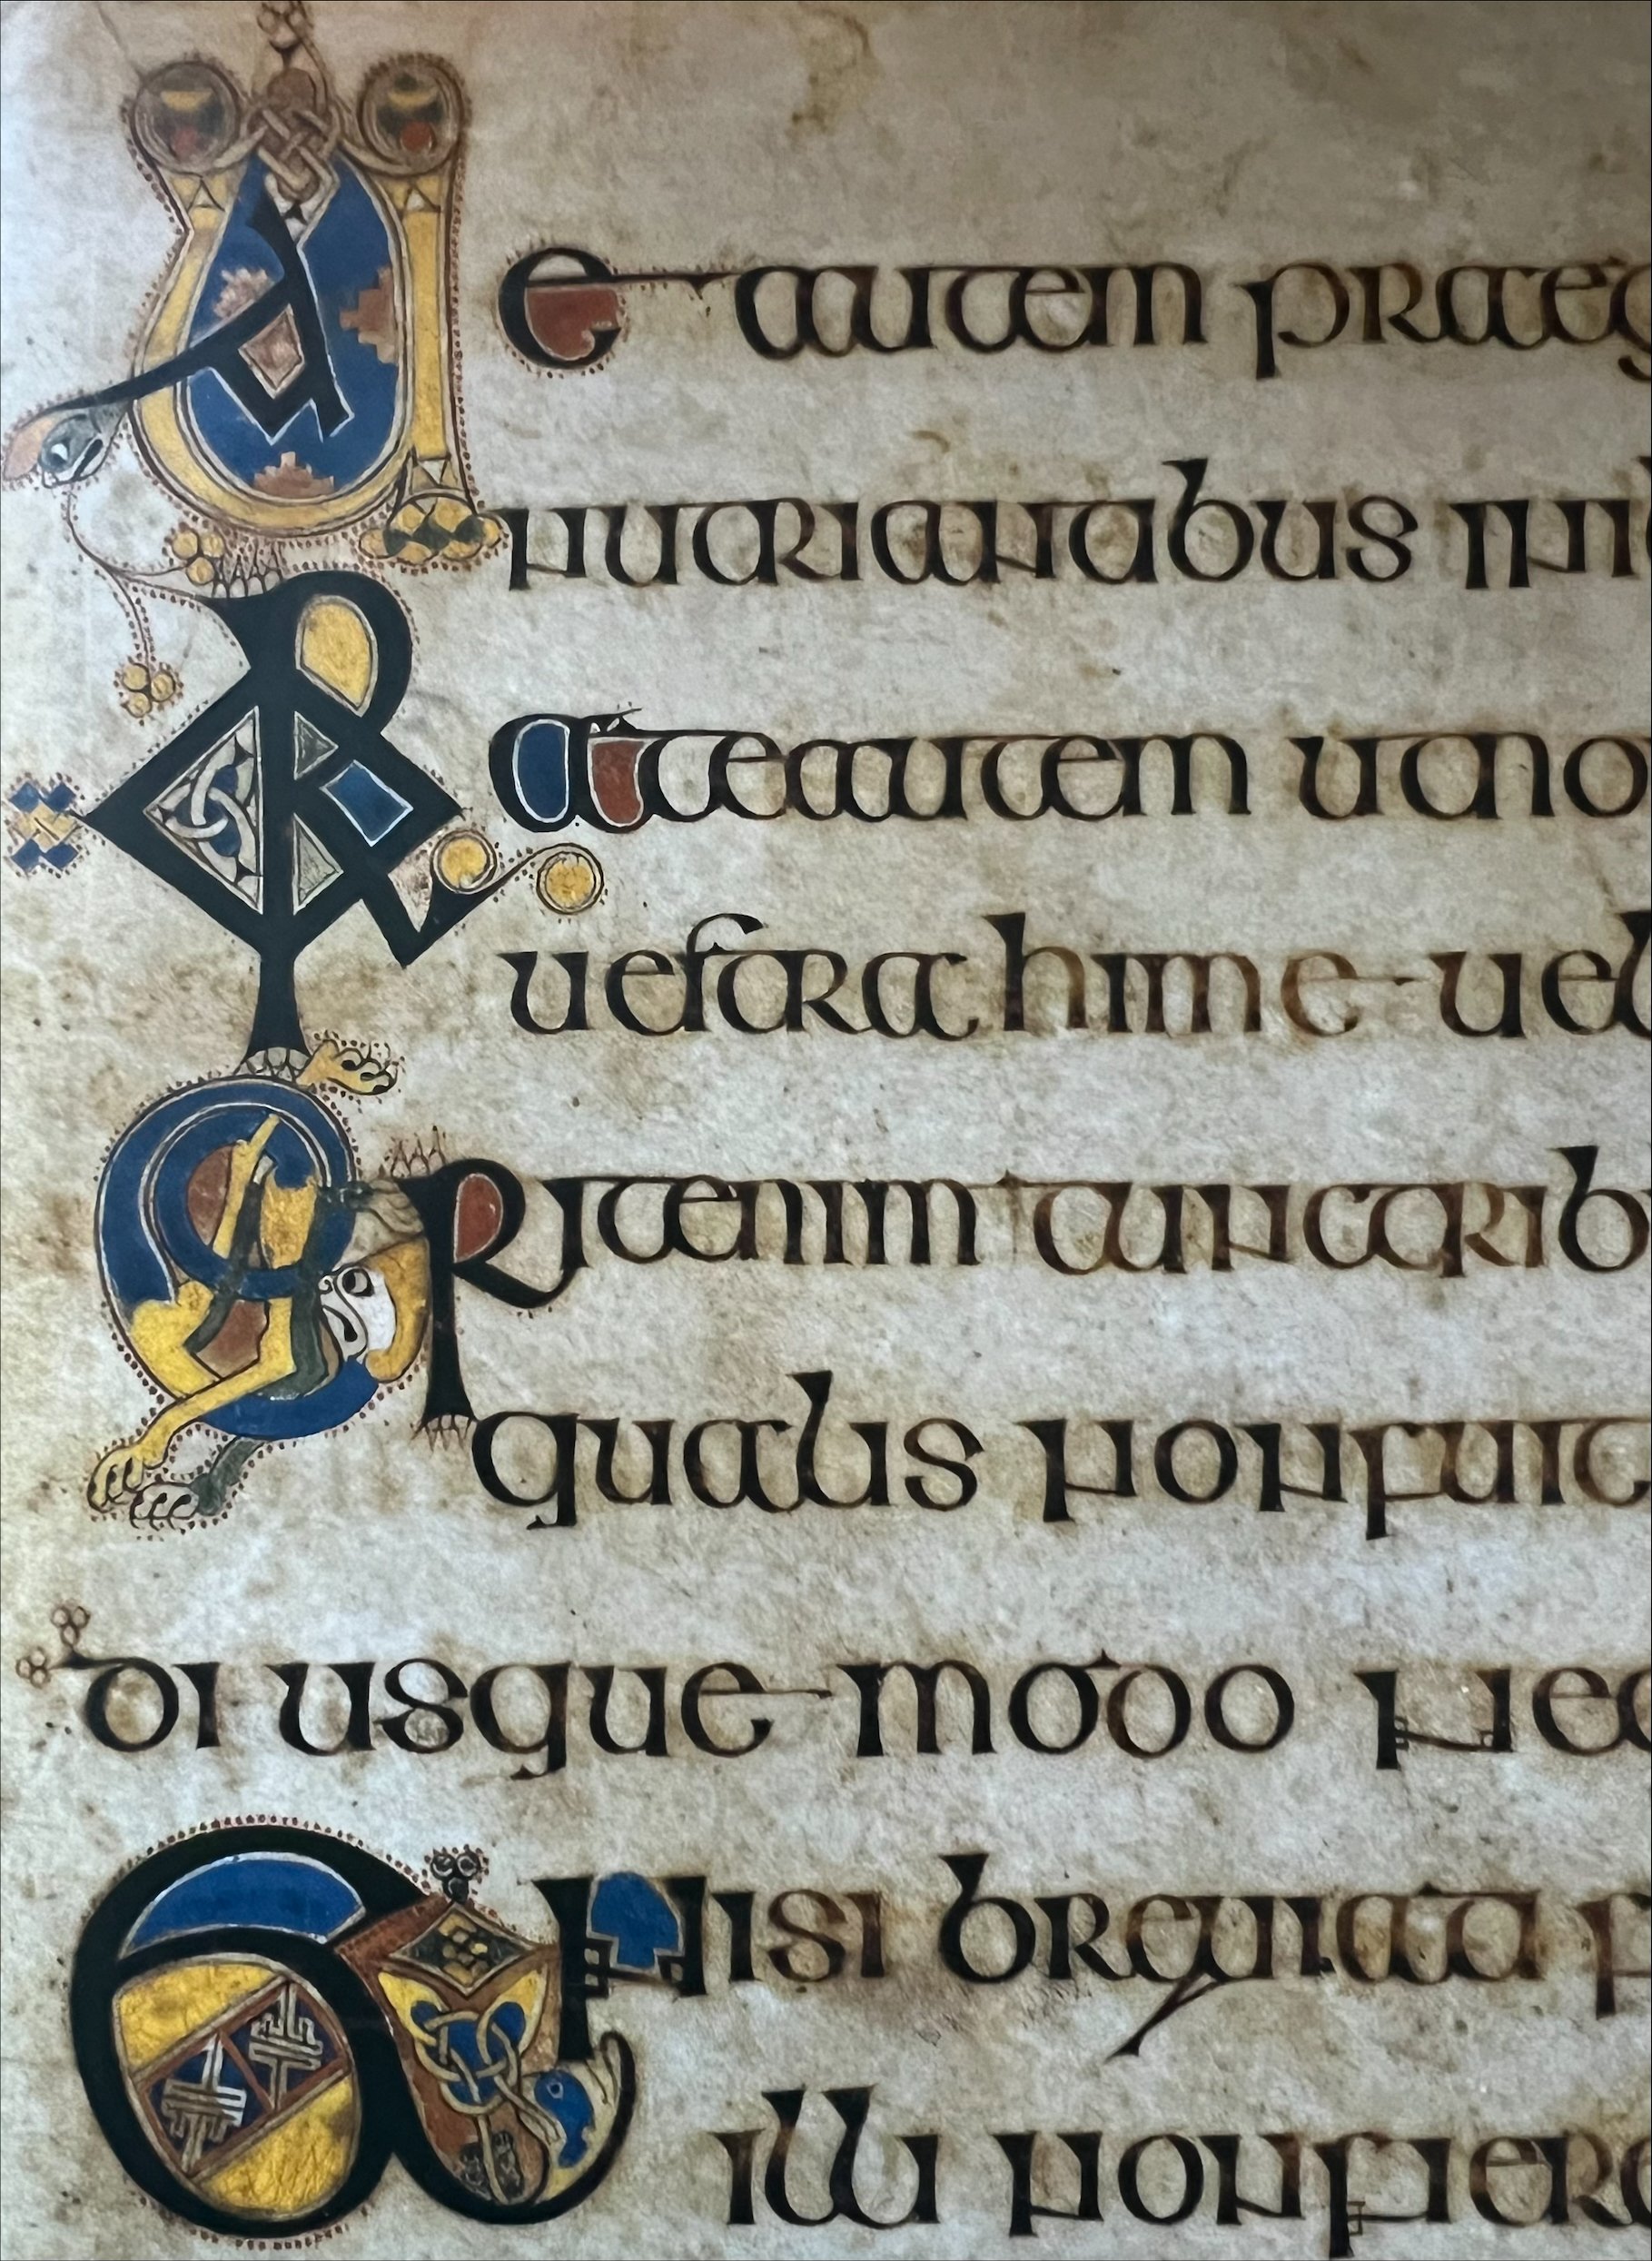 Uae autem praeg
nutrientibus in il
Orate autem ut no
uestra hime uel
Erit enim tunc trib
qualis non fuit
di usque modo neq
Et nisi breuiati f
illi non fiere